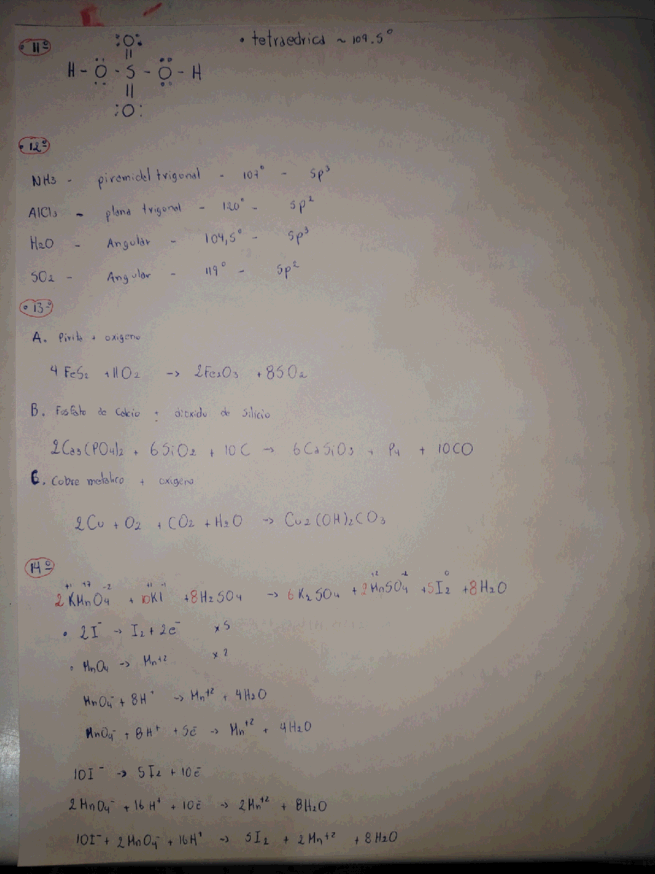 • 11º
:Ö:
• tetraedrica ~ 109.5°
||
H - Ö - S - Ö - H
||
:O:
• 12º
NH3 - piramidel trigonal - 107° - Sp³
AlCl3 - plana trigonal - 120° - Sp²
H2O - Angular - 104,5° - Sp³
SO2 - Angular - 119° - Sp²
• 13º
A. Pirita + oxigeno
4 FeS2 + 11O2 -> 2Fe2O3 + 8SO2
B. Fosfato de Calcio + dioxido de silicio
2Ca3(PO4)2 + 6SiO2 + 10C -> 6CaSiO3 + P4 + 10CO
C. Cobre metalico + oxigeno
2Cu + O2 + CO2 + H2O -> Cu2(OH)2CO3
14º
+1 +7 -2 +1 -1 +2 -2 0
2KMnO4 + 10KI + 8H2SO4 -> 6K2SO4 + 2MnSO4 + 5I2 + 8H2O
• 2I⁻ -> I2 + 2e⁻ x5
• MnO4 -> Mn⁺² x2
MnO4⁻ + 8H⁺ -> Mn⁺² + 4H2O
MnO4⁻ + 8H⁺ + 5e -> Mn⁺² + 4H2O
10I⁻ -> 5I2 + 10e
2MnO4⁻ + 16H⁺ + 10e -> 2Mn⁺² + 8H2O
10I⁻ + 2MnO4⁻ + 16H⁺ -> 5I2 + 2Mn⁺² + 8H2O